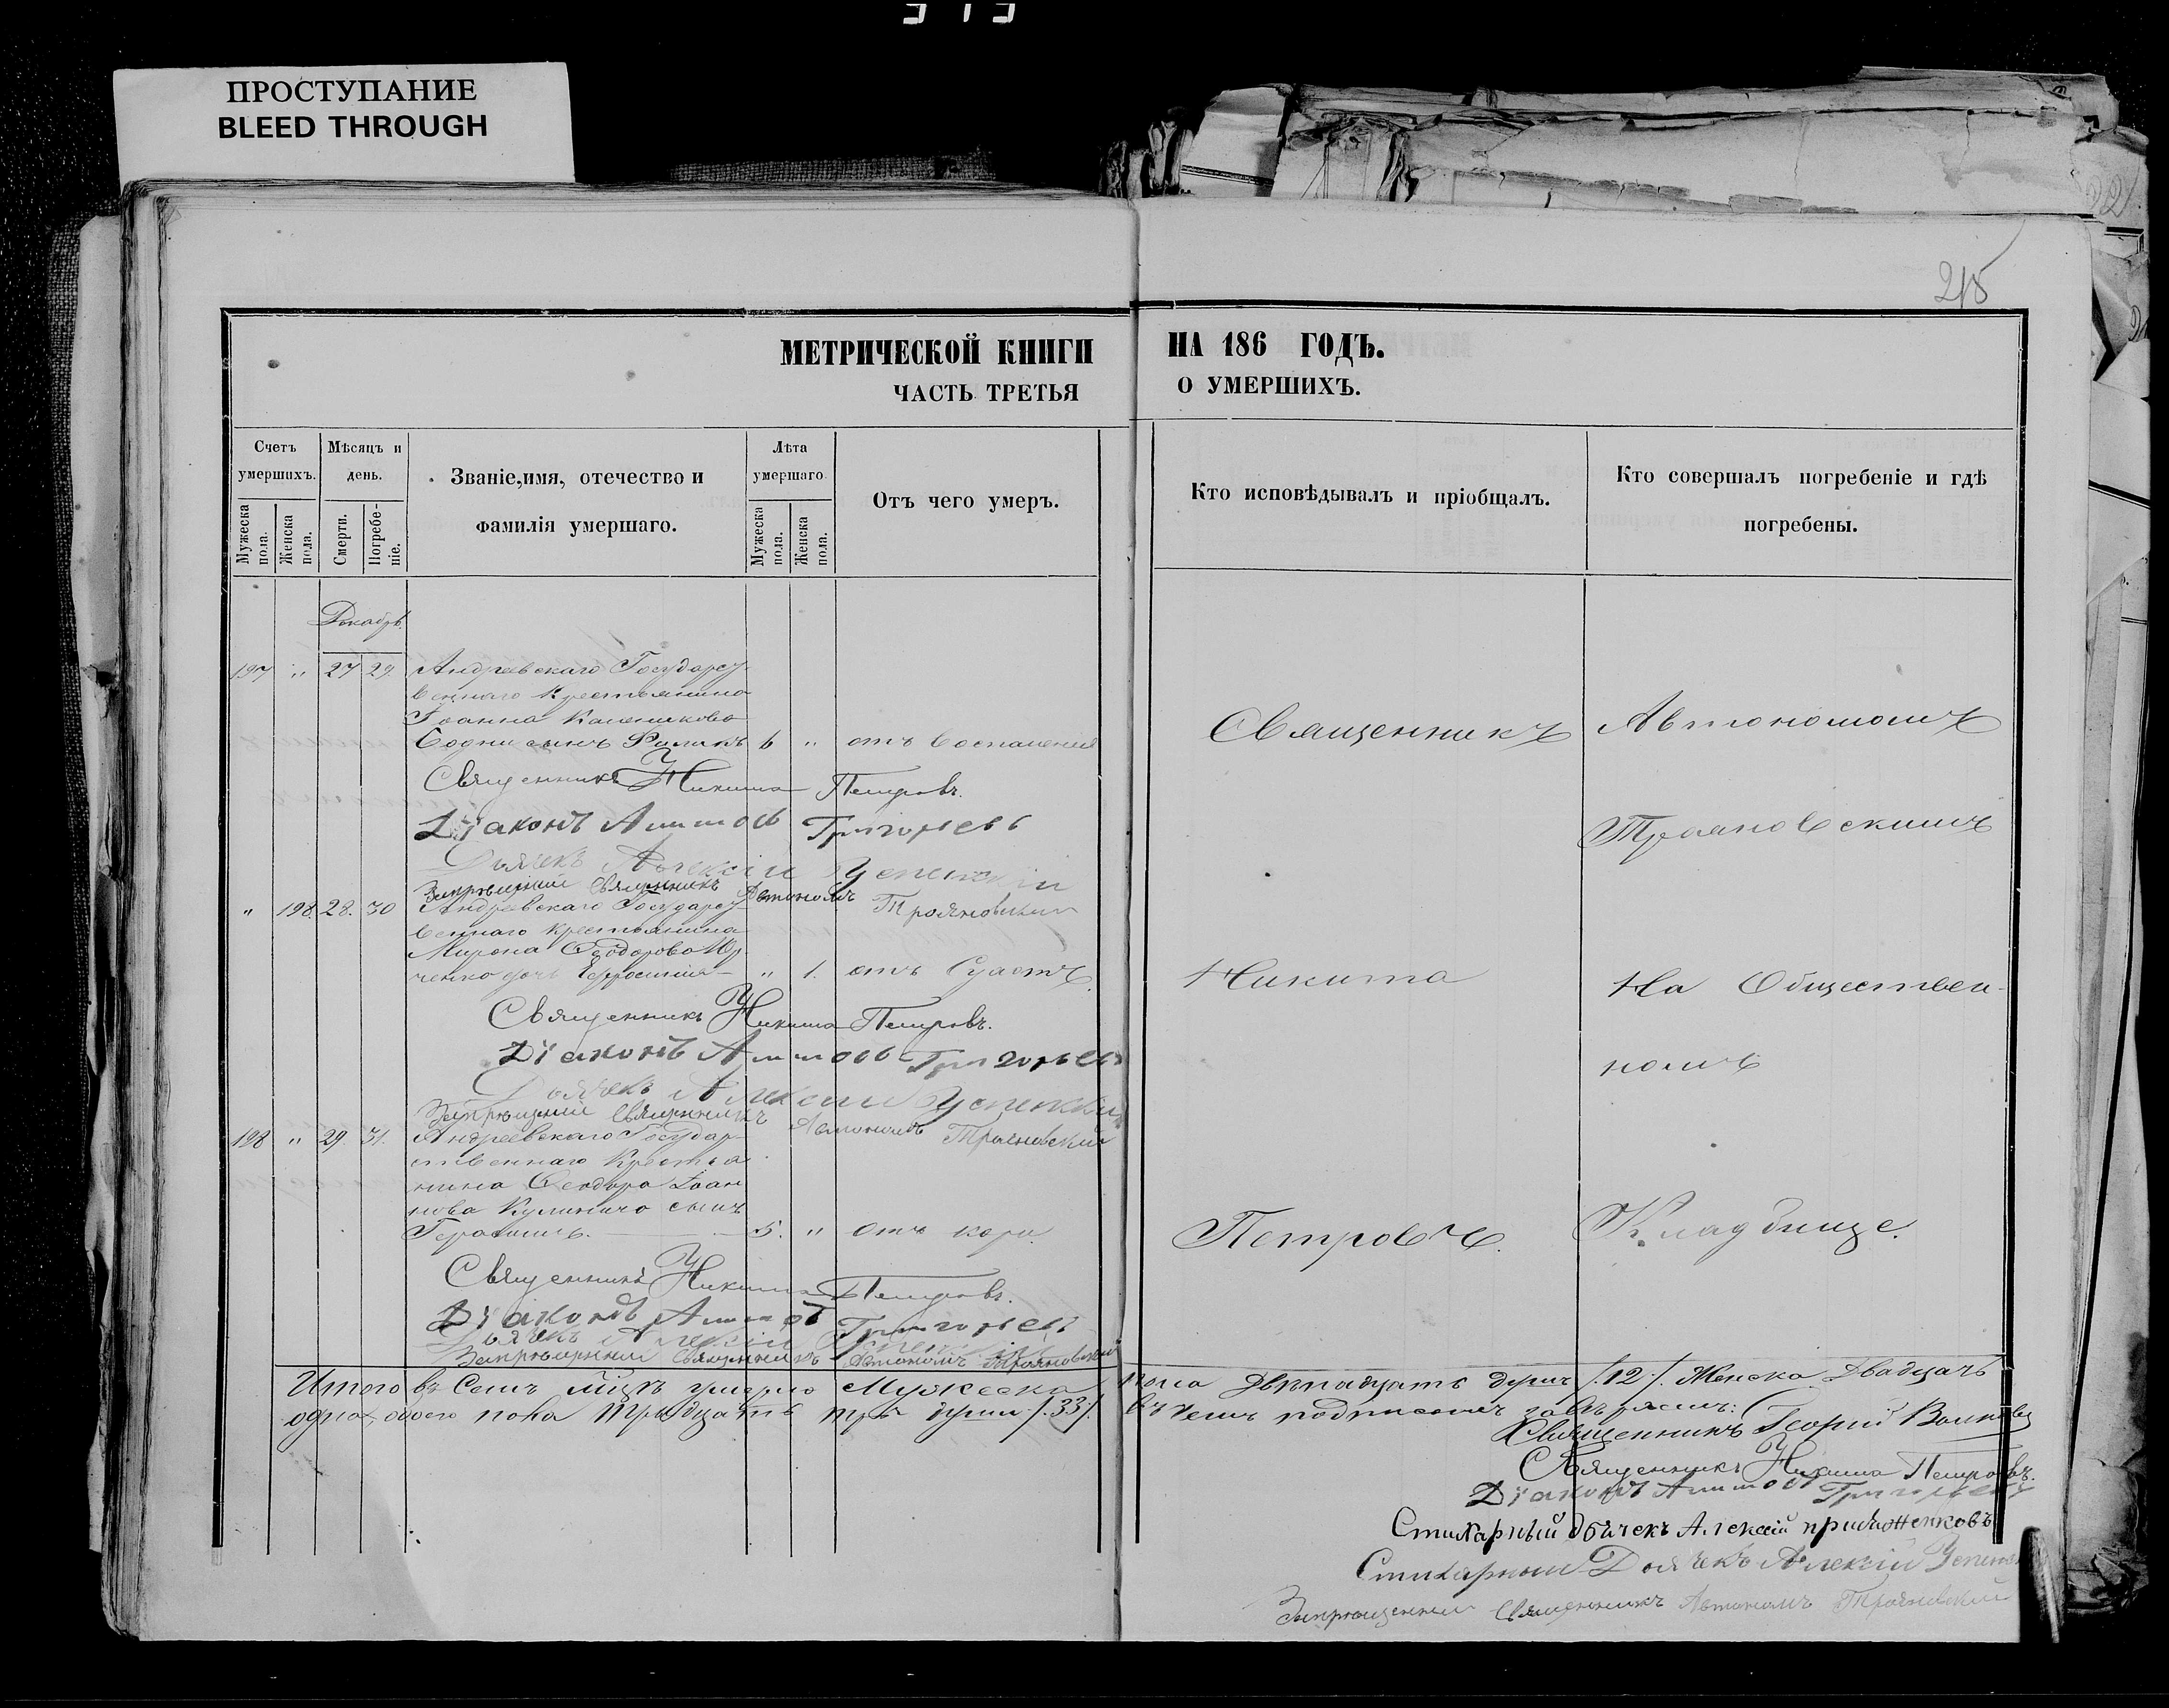 313
ПРОСТУПАНИЕ
BLEED THROUGH
215
МЕТРИЧЕСКОЙ КНИГИ НА 186 ГОДЪ.
ЧАСТЬ ТРЕТЬЯ О УМЕРШИХЪ.
Счетъ умершихъ.
Мужеска пола.
Женска пола.
Мѣсяцъ и день.
Смерти.
Погребе-
ніе.
Званіе,имя, отечество и
фамилія умершаго.
Лѣта умершаго
Мужеска пола.
Женска пола.
Отъ чего умеръ.
Кто исповѣдывалъ и пріобщалъ.
Кто совершалъ погребеніе и гдѣ
погребены.
Декабрь.
197 " 27 29. Андреевскаго Государст
веннаго Крестьянина
Іоанна
сынъ 6 " отъ Воспаленія
Священникъ Никита Петровъ.
Діаконъ Григорьевъ
Дьячекъ Алексій Успенскій
Запрещенный Священникъ Автономъ Трояновскій
" 198. 28. 30 Андреевскаго Государст
веннаго Крестьянина
Мирона Ѳеодорова Юр
ченко дочь Ефросинія " 1. отъ
Священникъ Никита Петровъ.
Діаконъ Григорьевъ
Дьячекъ Алексій Успенскій
Запрещенный Священникъ Автономъ Трояновскій
198 " 29 31. Андреевскаго Государ
ственнаго Крестья
нина Ѳеодора Іоан
нова сынъ
Герасимъ. 5. " отъ кори.
Священникъ Никита Петровъ.
Діаконъ Григорьевъ
Дьячекъ Алексій Успенскій
Запрещенный Священникъ Автономъ Трояновскій
Священникъ
Никита
Петровъ.
Автономомъ
Трояновскимъ
На Обществен-
номъ
Кладбище.
Итого въ Семъ мѣцѣ умерло Мужеска пола Двѣнадцать душъ /.12./. Женска Двадцать
одна, обоего пола Тридцать три души /.33/. Въ чемъ подписомъ завѣряемъ:
Священникъ Георгій
Священникъ Никита Петровъ.
Діаконъ Григорьевъ
Стихарный дьячекъ Алексій
Стихарный Дьячекъ Алексій Успенскій
Запрещенный Священникъ Автономъ Трояновскій